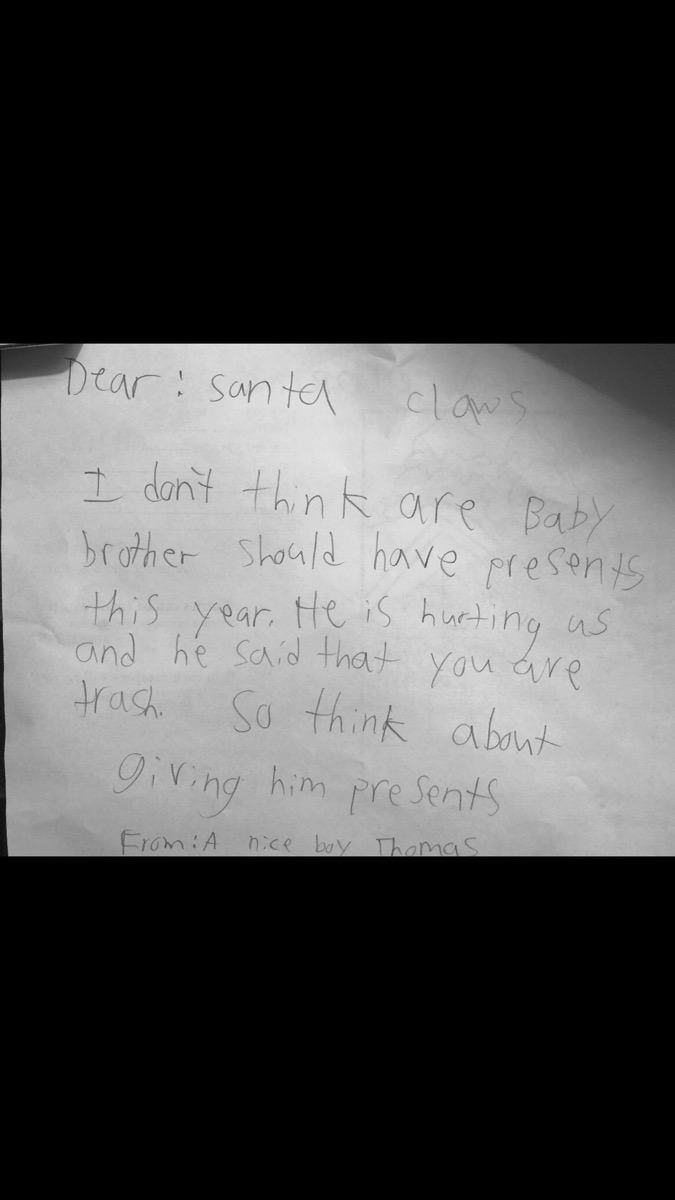 Dear: santa claws
I don't think are Baby
brother should have presents
this year. He is hurting us
and he said that you are
trash. So think about
giving him presents
From: A nice boy Thomas